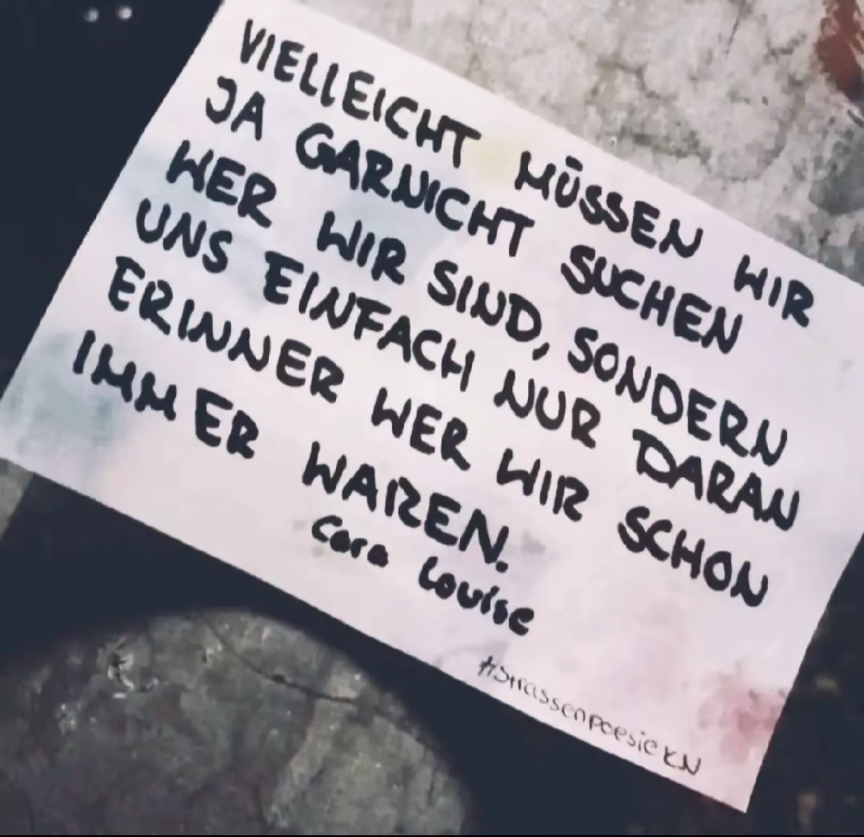 VIELLEICHT MÜSSEN WIR
JA GARNICHT SUCHEN
WER WIR SIND, SONDERN
UNS EINFACH NUR DARAN
ERINNER WER WIR SCHON
IMMER WAREN.
Cara Louise
#StrassenpoesieKN